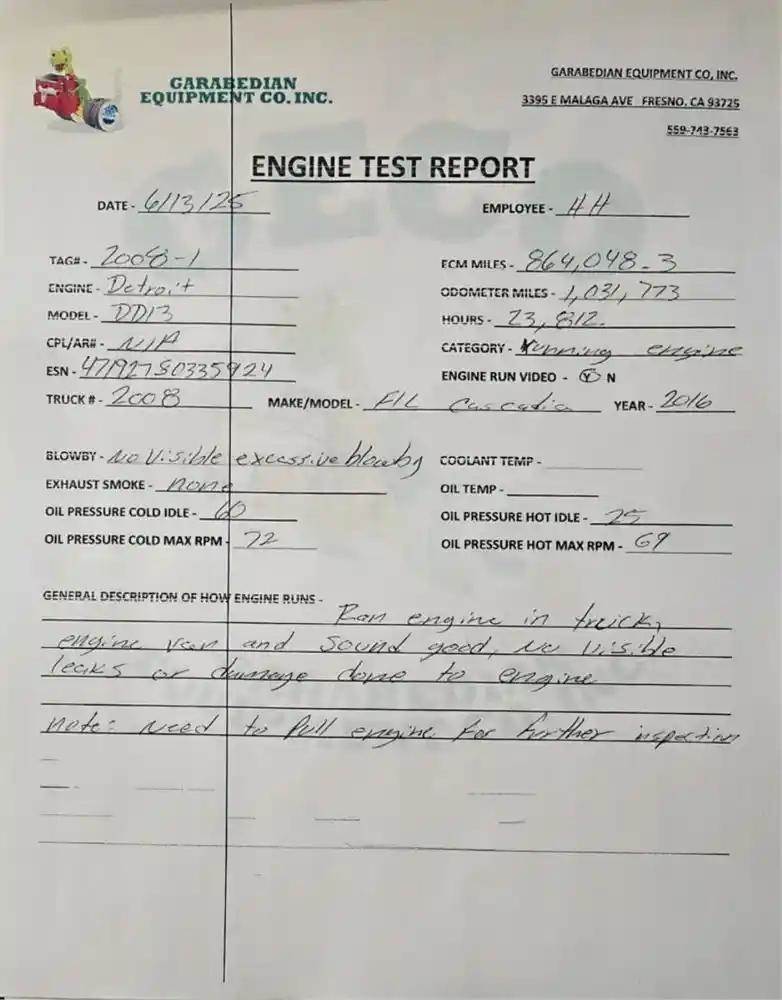 GARABEDIAN
EQUIPMENT CO. INC.
GARABEDIAN EQUIPMENT CO, INC.
3395 E MALAGA AVE FRESNO, CA 93725
559-743-7563
ENGINE TEST REPORT
DATE - 6/13/25 EMPLOYEE - HH
TAG# - 2008-1 ECM MILES - 864,048.3
ENGINE - Detroit ODOMETER MILES - 1,031,773
MODEL - DD13 HOURS - 23,812.
CPL/AR# - N/A CATEGORY - Running engine
ESN - 471927S0335924 ENGINE RUN VIDEO - Y N
TRUCK # - 2008 MAKE/MODEL - F/L Cascadia YEAR - 2016
BLOWBY - No Visible excessive blowby COOLANT TEMP -
EXHAUST SMOKE - none OIL TEMP -
OIL PRESSURE COLD IDLE - 60 OIL PRESSURE HOT IDLE - 25
OIL PRESSURE COLD MAX RPM - 72 OIL PRESSURE HOT MAX RPM - 69
GENERAL DESCRIPTION OF HOW ENGINE RUNS -
Ran engine in truck,
engine ran and sound good, no visible
leaks or damage done to engine
note: need to pull engine for further inspection